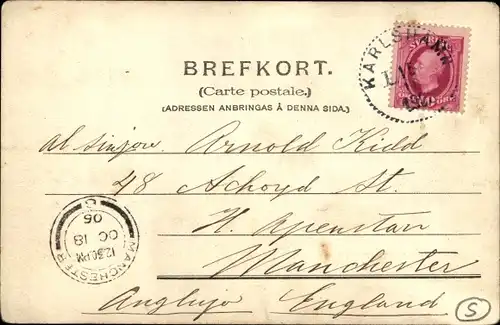 BREFKORT.
(Carte postale.)
(ADRESSEN ANBRINGAS Å DENNA SIDA.)
KARLSHAMN
al sinjoro. Arnold Kidd
48 Achoyd St.
W. Openstan
Manchester
Anglujo England
MANCHESTER
12.30PM
OC 18
05
S